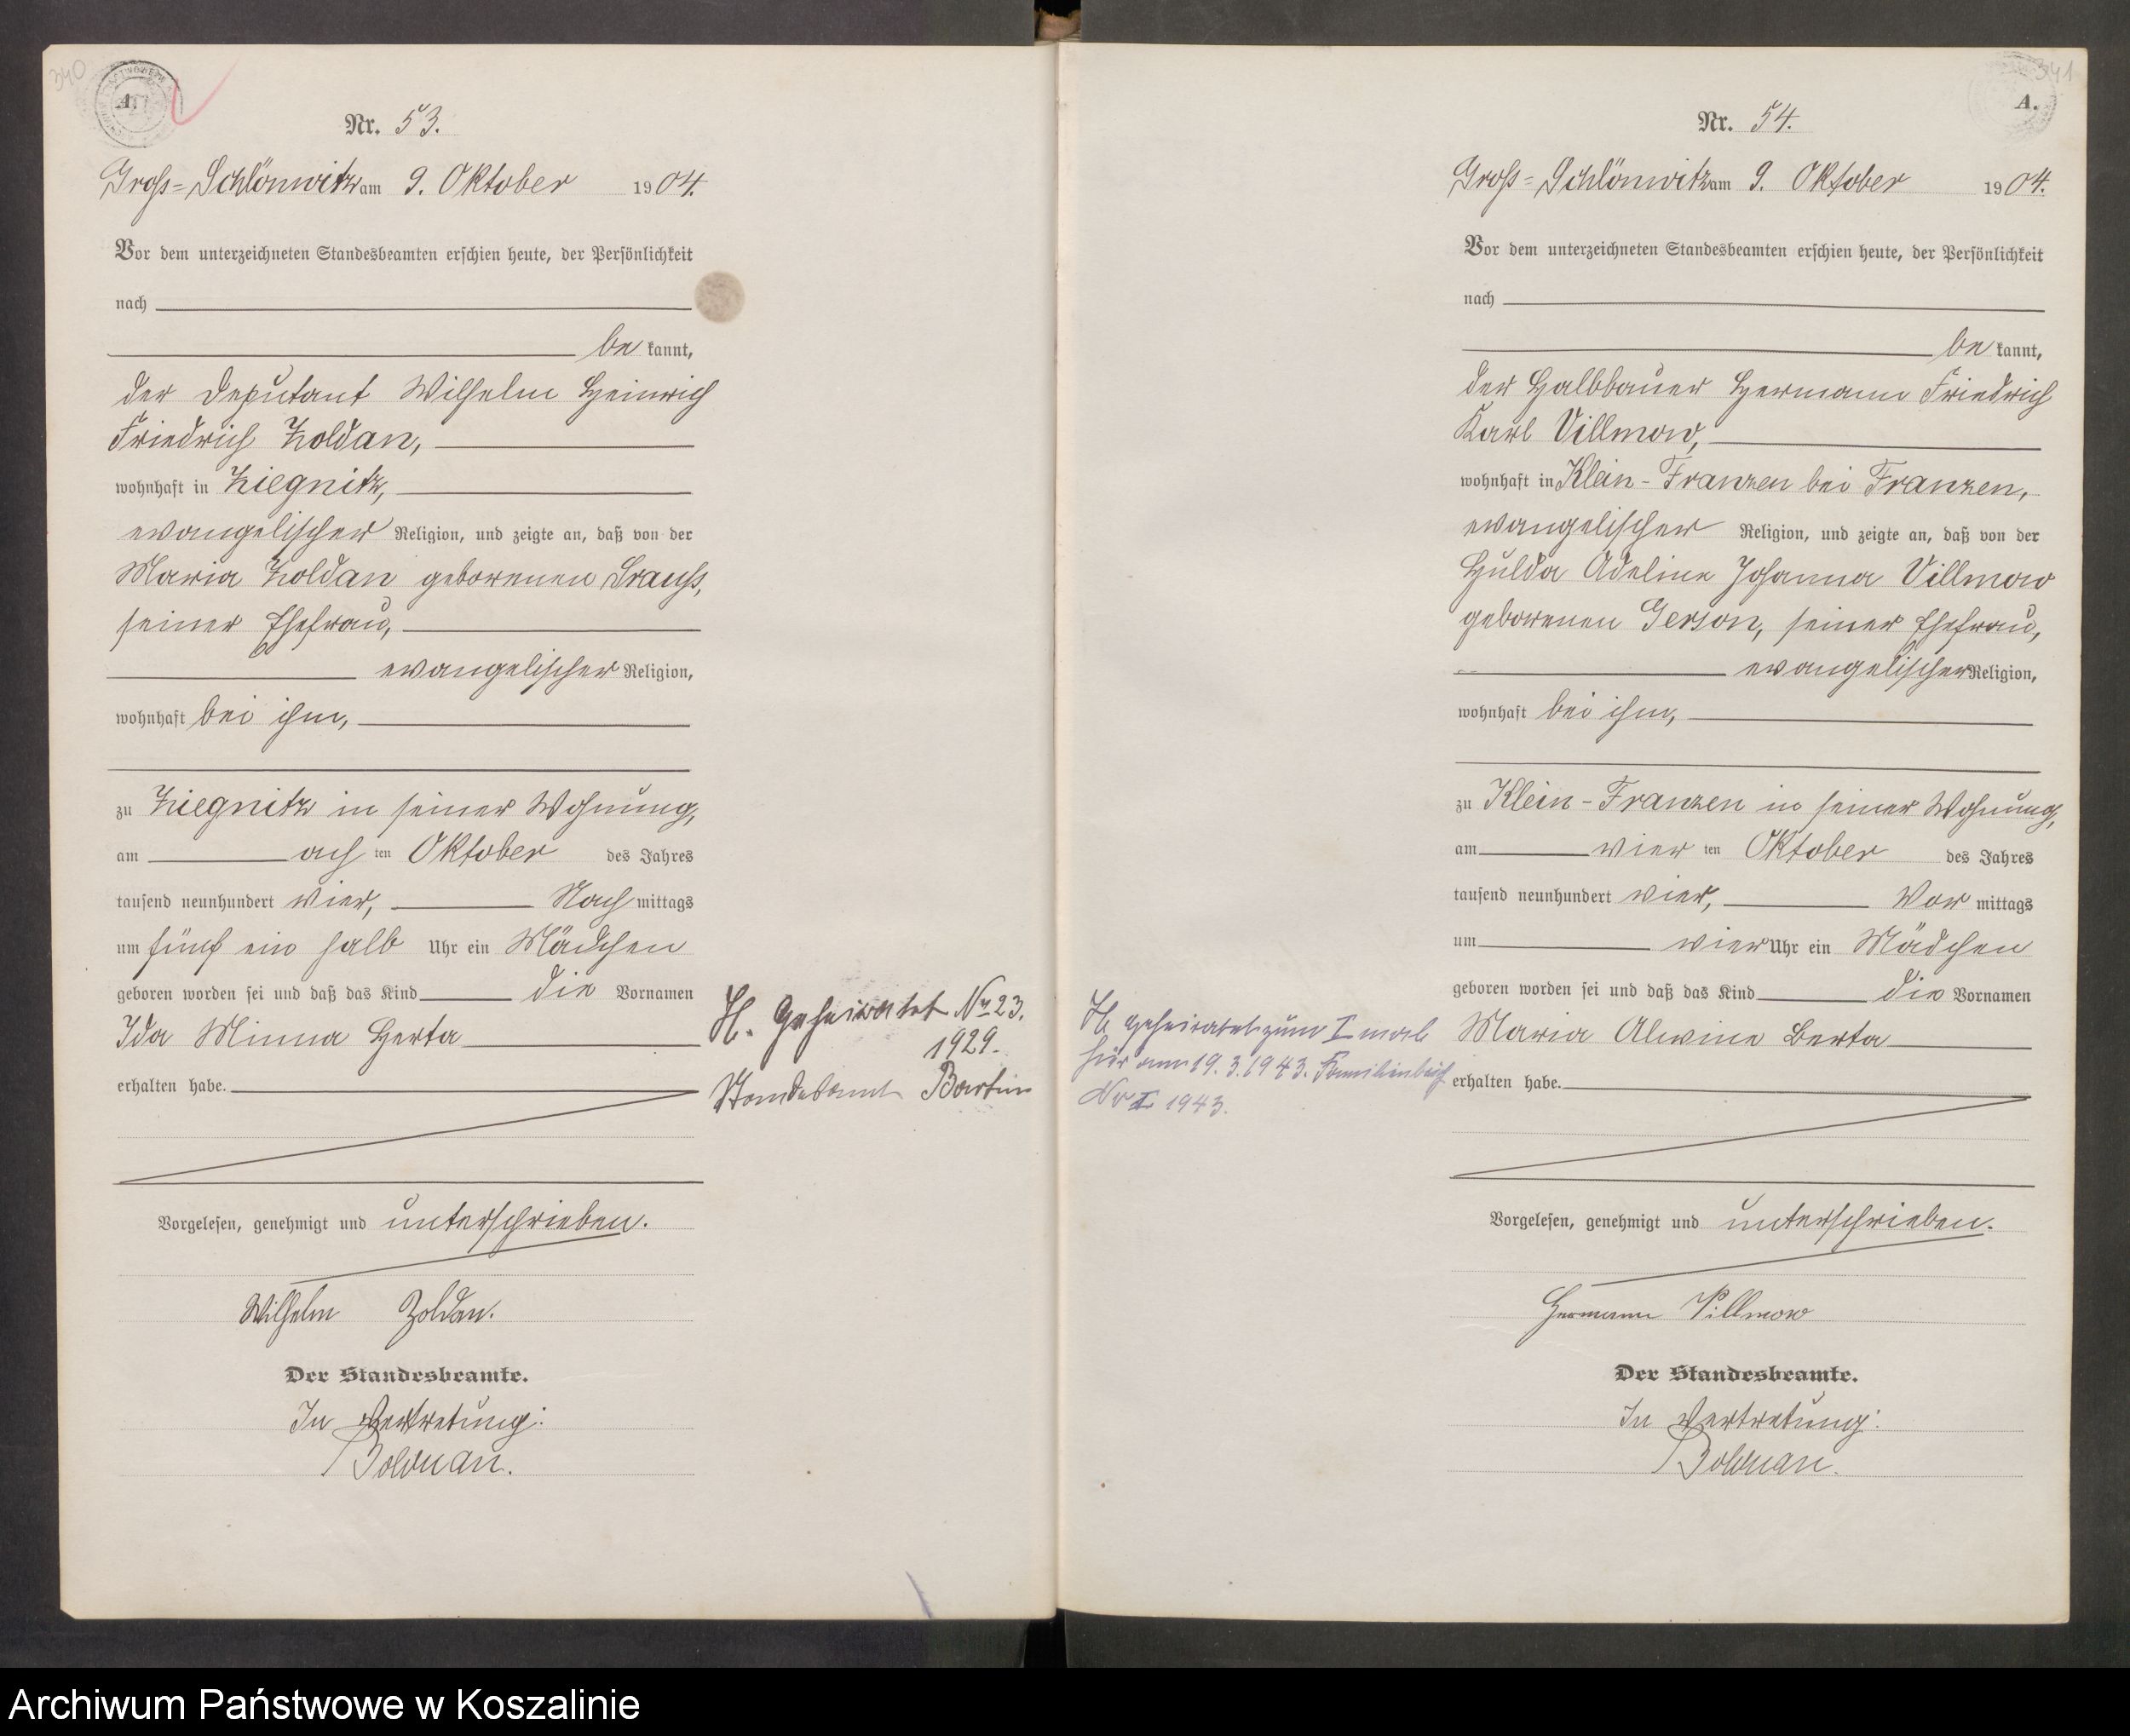 340
Nr. 53.
Groß-Schlönwitz am 9. Oktober 1904.
Vor dem unterzeichneten Standesbeamten erschien heute, der Persönlichkeit
nach
be kannt,
der Deputant Wilhelm Heinrich
Friedrich Zoldan,
wohnhaft in Ziegnitz,
evangelischer Religion, und zeigte an, daß von der
Maria Zoldan geborenen Krauß,
seiner Ehefrau,
evangelischer Religion,
wohnhaft bei ihm,
zu Ziegnitz in seiner Wohnung,
am ach ten Oktober des Jahres
tausend neunhundert vier, Nach mittags
um fünf ein halb Uhr ein Mädchen
geboren worden sei und daß das Kind die Vornamen
Ida Minna Herta
erhalten habe.
Vorgelesen, genehmigt und unterschrieben.
Wilhelm Zoldan.
Der Standesbeamte.
In Vertretung:
Bolduan.
H. Geheiratet Nr 23.
1929.
Standesamt Bartin
341
A.
Nr. 54.
Groß-Schlönwitz am 9. Oktober 1904.
Vor dem unterzeichneten Standesbeamten erschien heute, der Persönlichkeit
nach
be kannt,
der Halbbauer Hermann Friedrich
Karl Villmow,
wohnhaft in Klein-Franzen bei Franzen,
evangelischer Religion, und zeigte an, daß von der
Hulda Adeline Johanna Villmow
geborenen Gerson, seiner Ehefrau,
evangelischer Religion,
wohnhaft bei ihm,
zu Klein-Franzen in seiner Wohnung,
am vier ten Oktober des Jahres
tausend neunhundert vier, Vor mittags
um vier Uhr ein Mädchen
geboren worden sei und daß das Kind die Vornamen
Maria Alwine Berta
erhalten habe.
Vorgelesen, genehmigt und unterschrieben.
Hermann Villmow
Der Standesbeamte.
In Vertretung:
Bolduan.
H. geheiratet zum I mal
hier am 19.3.1943. Familienbuch
Nr I 1943.
Archiwum Państwowe w Koszalinie